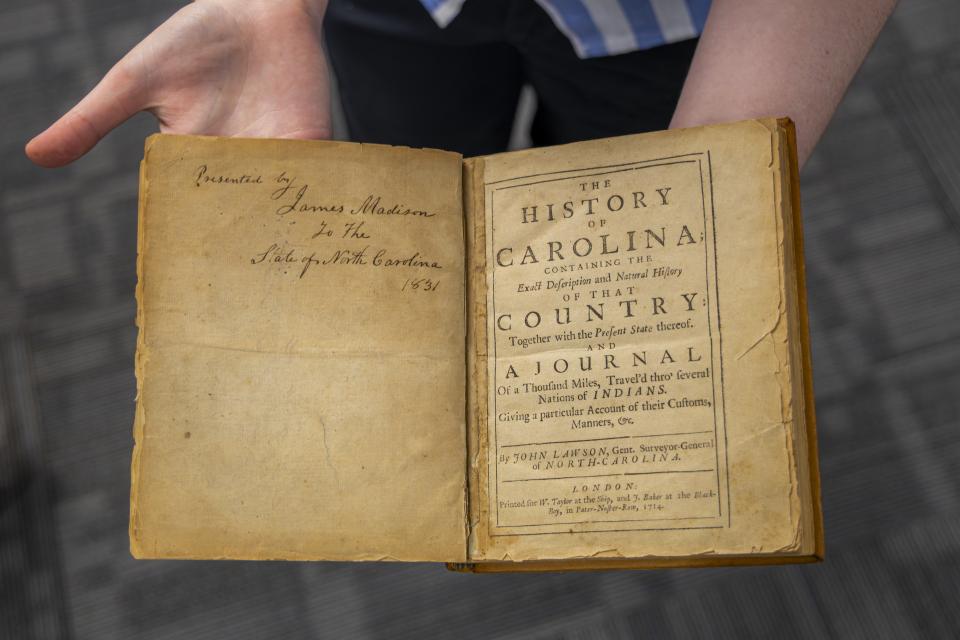 Presented by
James Madison
To The
State of North Carolina
1831
THE
HISTORY
OF
CAROLINA;
CONTAINING THE
Exact Deſcription and Natural Hiſtory
OF THAT
COUNTRY:
Together with the Preſent State thereof.
AND
A JOURNAL
Of a Thouſand Miles, Travel'd thro' ſeveral
Nations of INDIANS.
Giving a particular Account of their Cuſtoms,
Manners, &c.
By JOHN LAWSON, Gent. Surveyor-General
of NORTH-CAROLINA.
LONDON:
Printed for W. Taylor at the Ship, and J. Baker at the Black-
Boy, in Pater-Noſter-Row, 1714.